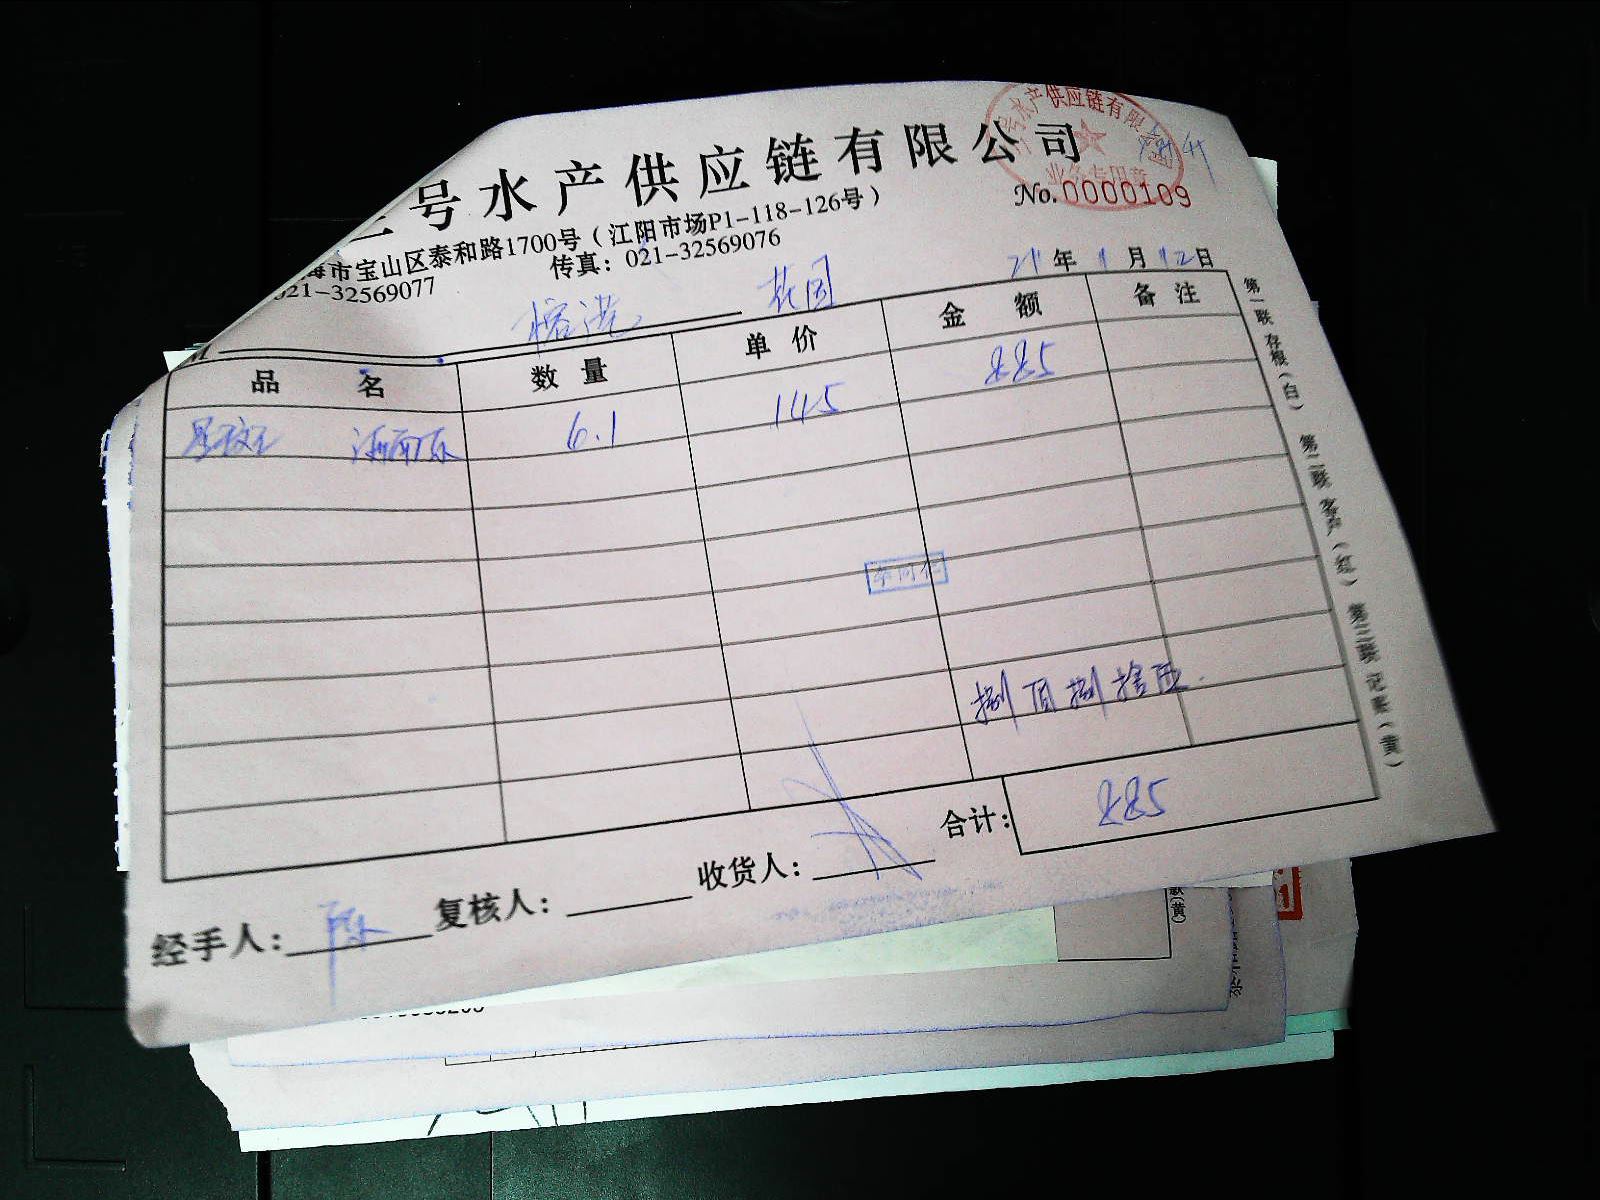 号水产供应链有限公司
号水产供应链有限
业务专用章
No.0000109
海市宝山区泰和路1700号（江阳市场P1-118-126号）
021-32569077 传真：021-32569076
21年1月12日
榕港 花园
品名 数量 单价 金额 备注
星斑 海南 6.1 145 885
捌百捌拾五
合计： 885
经手人：陈 复核人： 收货人：
第一联 存根（白） 第二联 客户（红） 第三联 记账（黄）